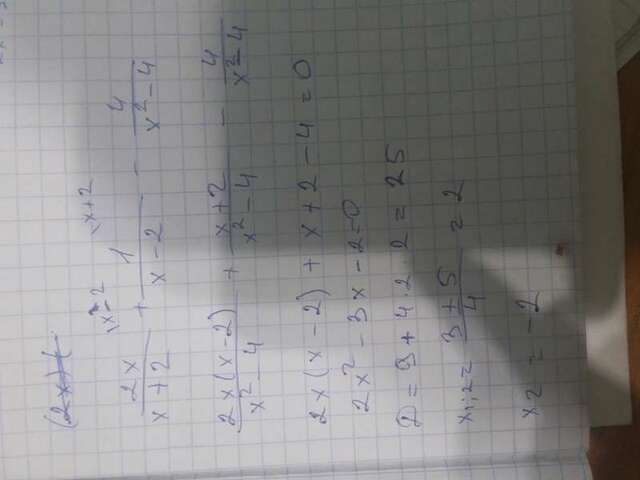 (2x) (
\x-2 \x+2
2x/(x+2) + 1/(x-2) - 4/(x²-4)
2x(x-2)/(x²-4) + (x+2)/(x²-4) - 4/(x²-4)
2x(x-2) + x+2-4 = 0
2x²-3x-2=0
D = 9+4·2·2 = 25
x₁;₂ = (3±5)/4 = 2
x₂ = -2